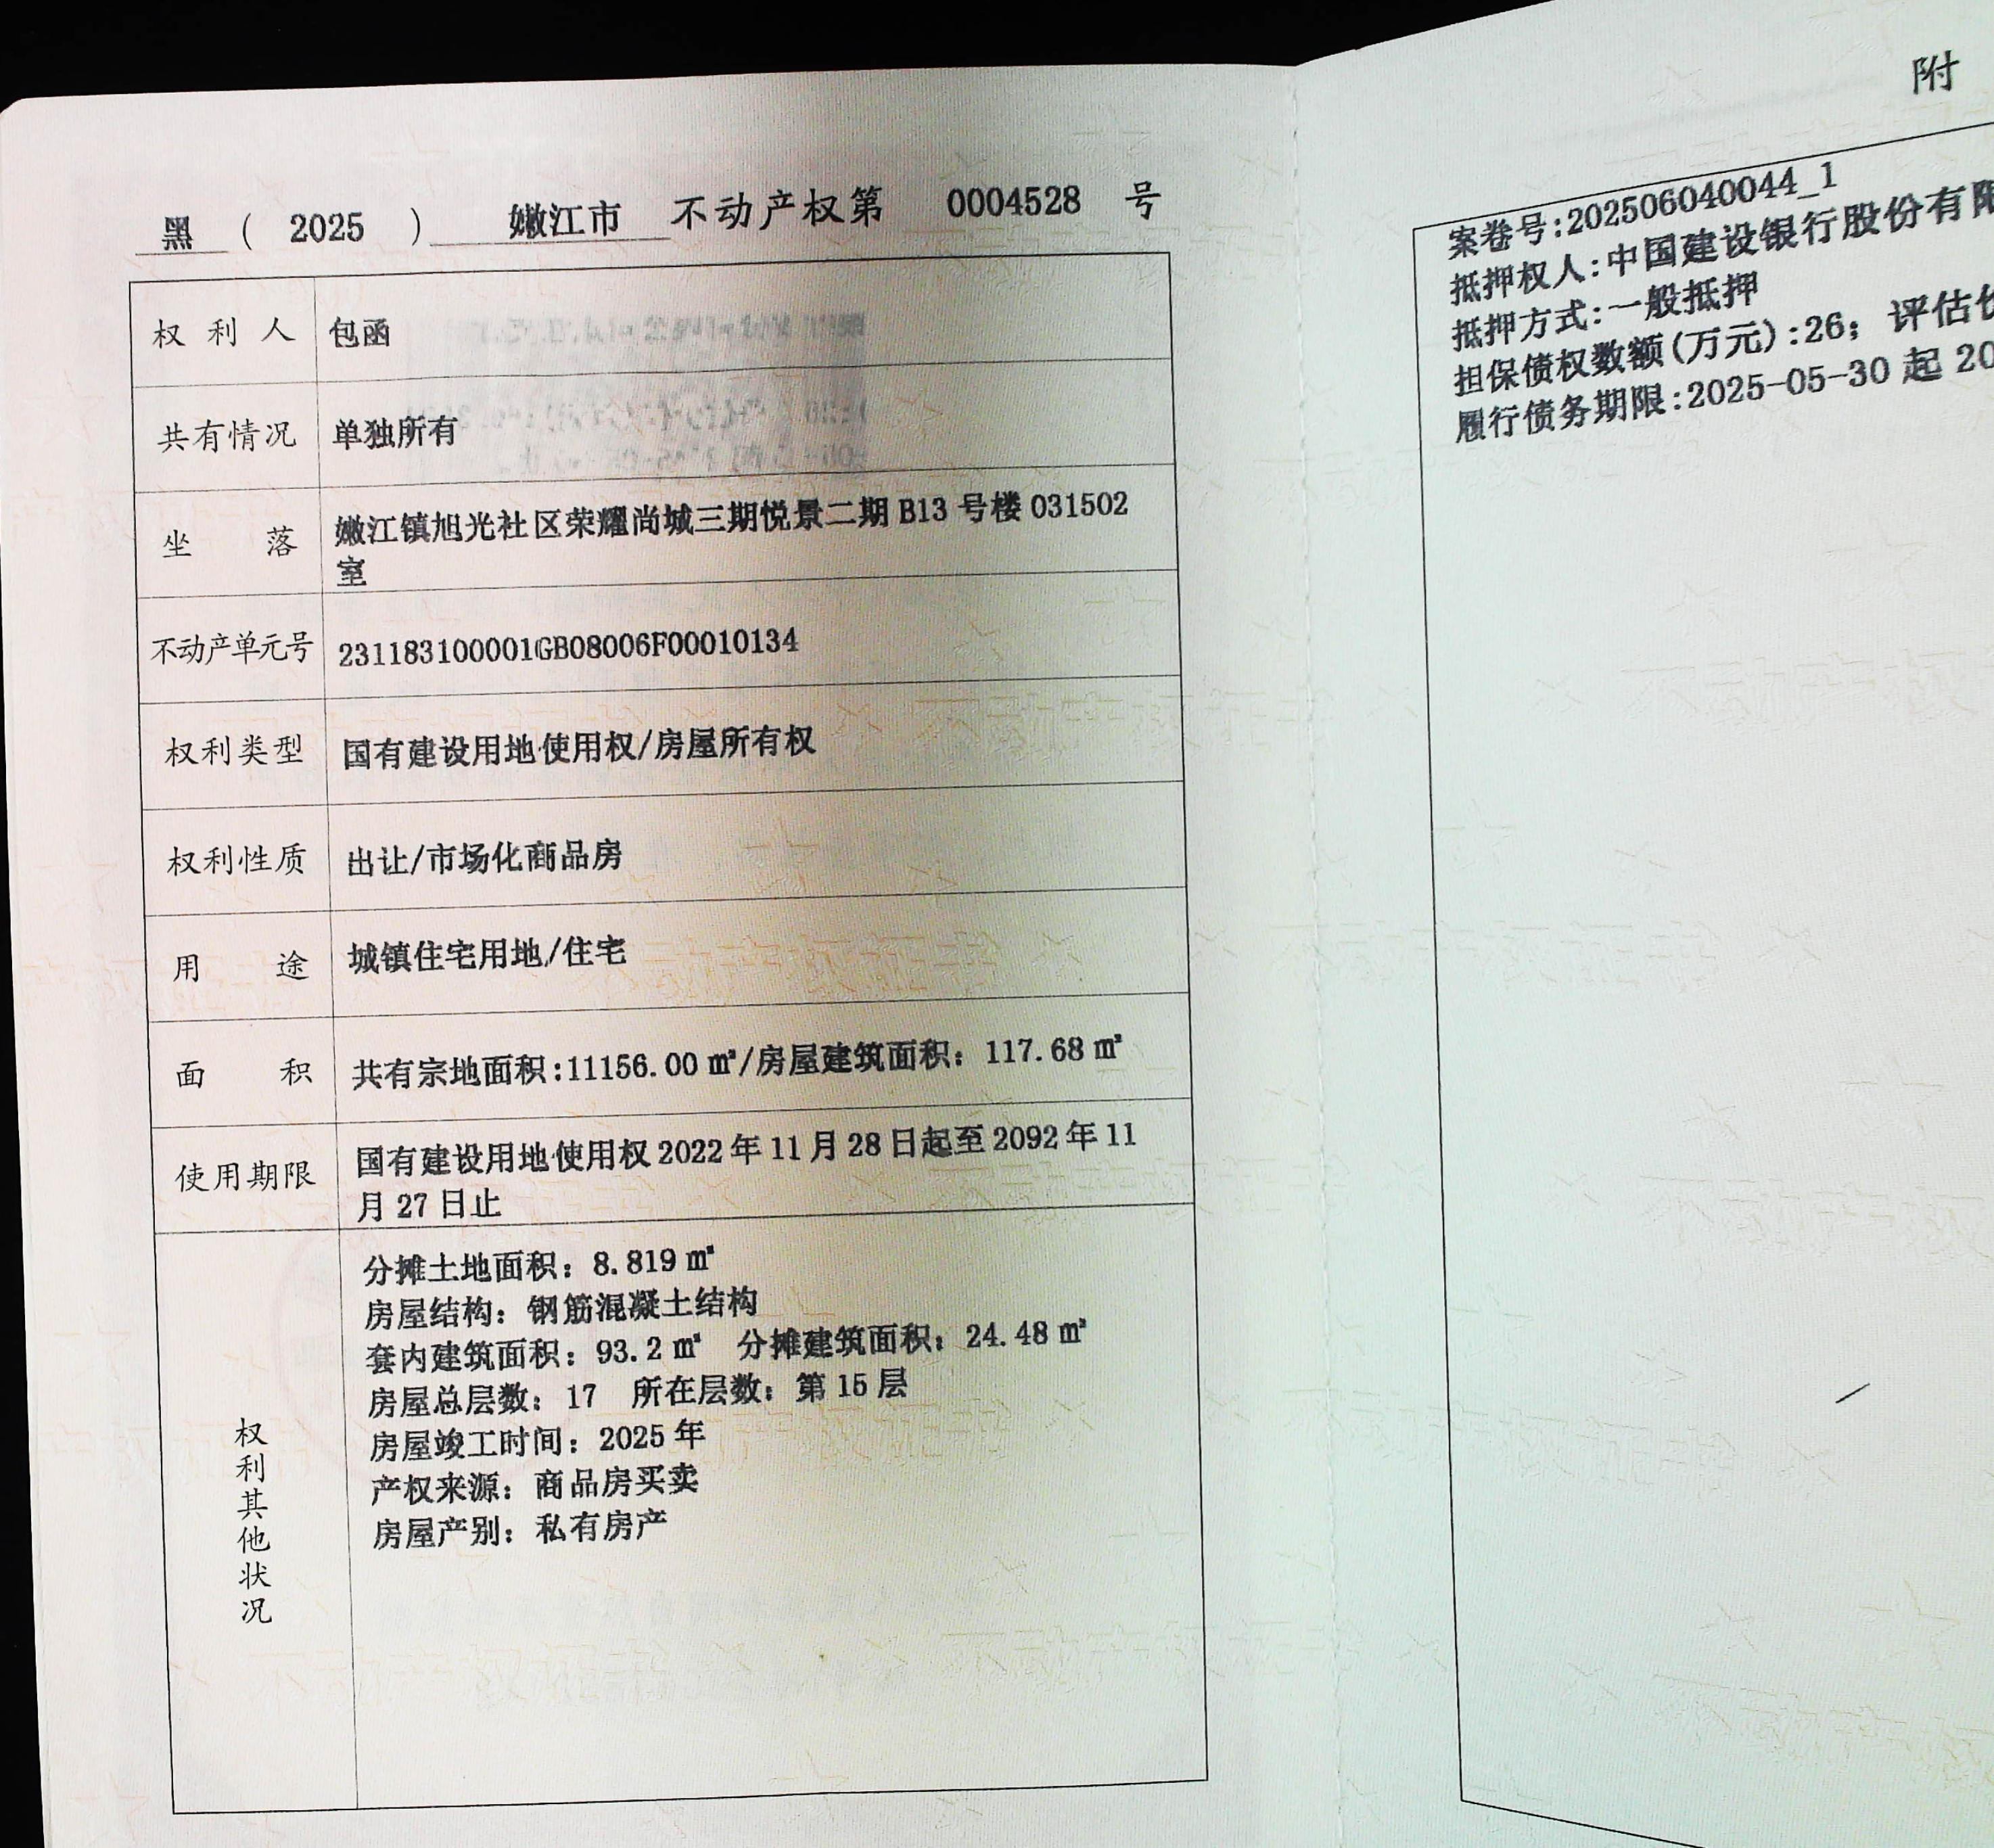 黑 ( 2025 ) 嫩江市 不动产权第 0004528 号
权利人 包函
共有情况 单独所有
坐落 嫩江镇旭光社区荣耀尚城三期悦景二期 B13 号楼 031502
室
不动产单元号 231183100001GB08006F00010134
权利类型 国有建设用地使用权/房屋所有权
权利性质 出让/市场化商品房
用途 城镇住宅用地/住宅
面积 共有宗地面积:11156.00 ㎡/房屋建筑面积：117.68 ㎡
使用期限 国有建设用地使用权 2022 年 11 月 28 日起至 2092 年 11
月 27 日止
权利其他状况
分摊土地面积：8.819 ㎡
房屋结构：钢筋混凝土结构
套内建筑面积：93.2 ㎡ 分摊建筑面积：24.48 ㎡
房屋总层数：17 所在层数：第 15 层
房屋竣工时间：2025 年
产权来源：商品房买卖
房屋产别：私有房产
附
案卷号:202506040044_1
抵押权人:中国建设银行股份有限
抵押方式:一般抵押
担保债权数额(万元):26；评估价
履行债务期限:2025-05-30 起 20